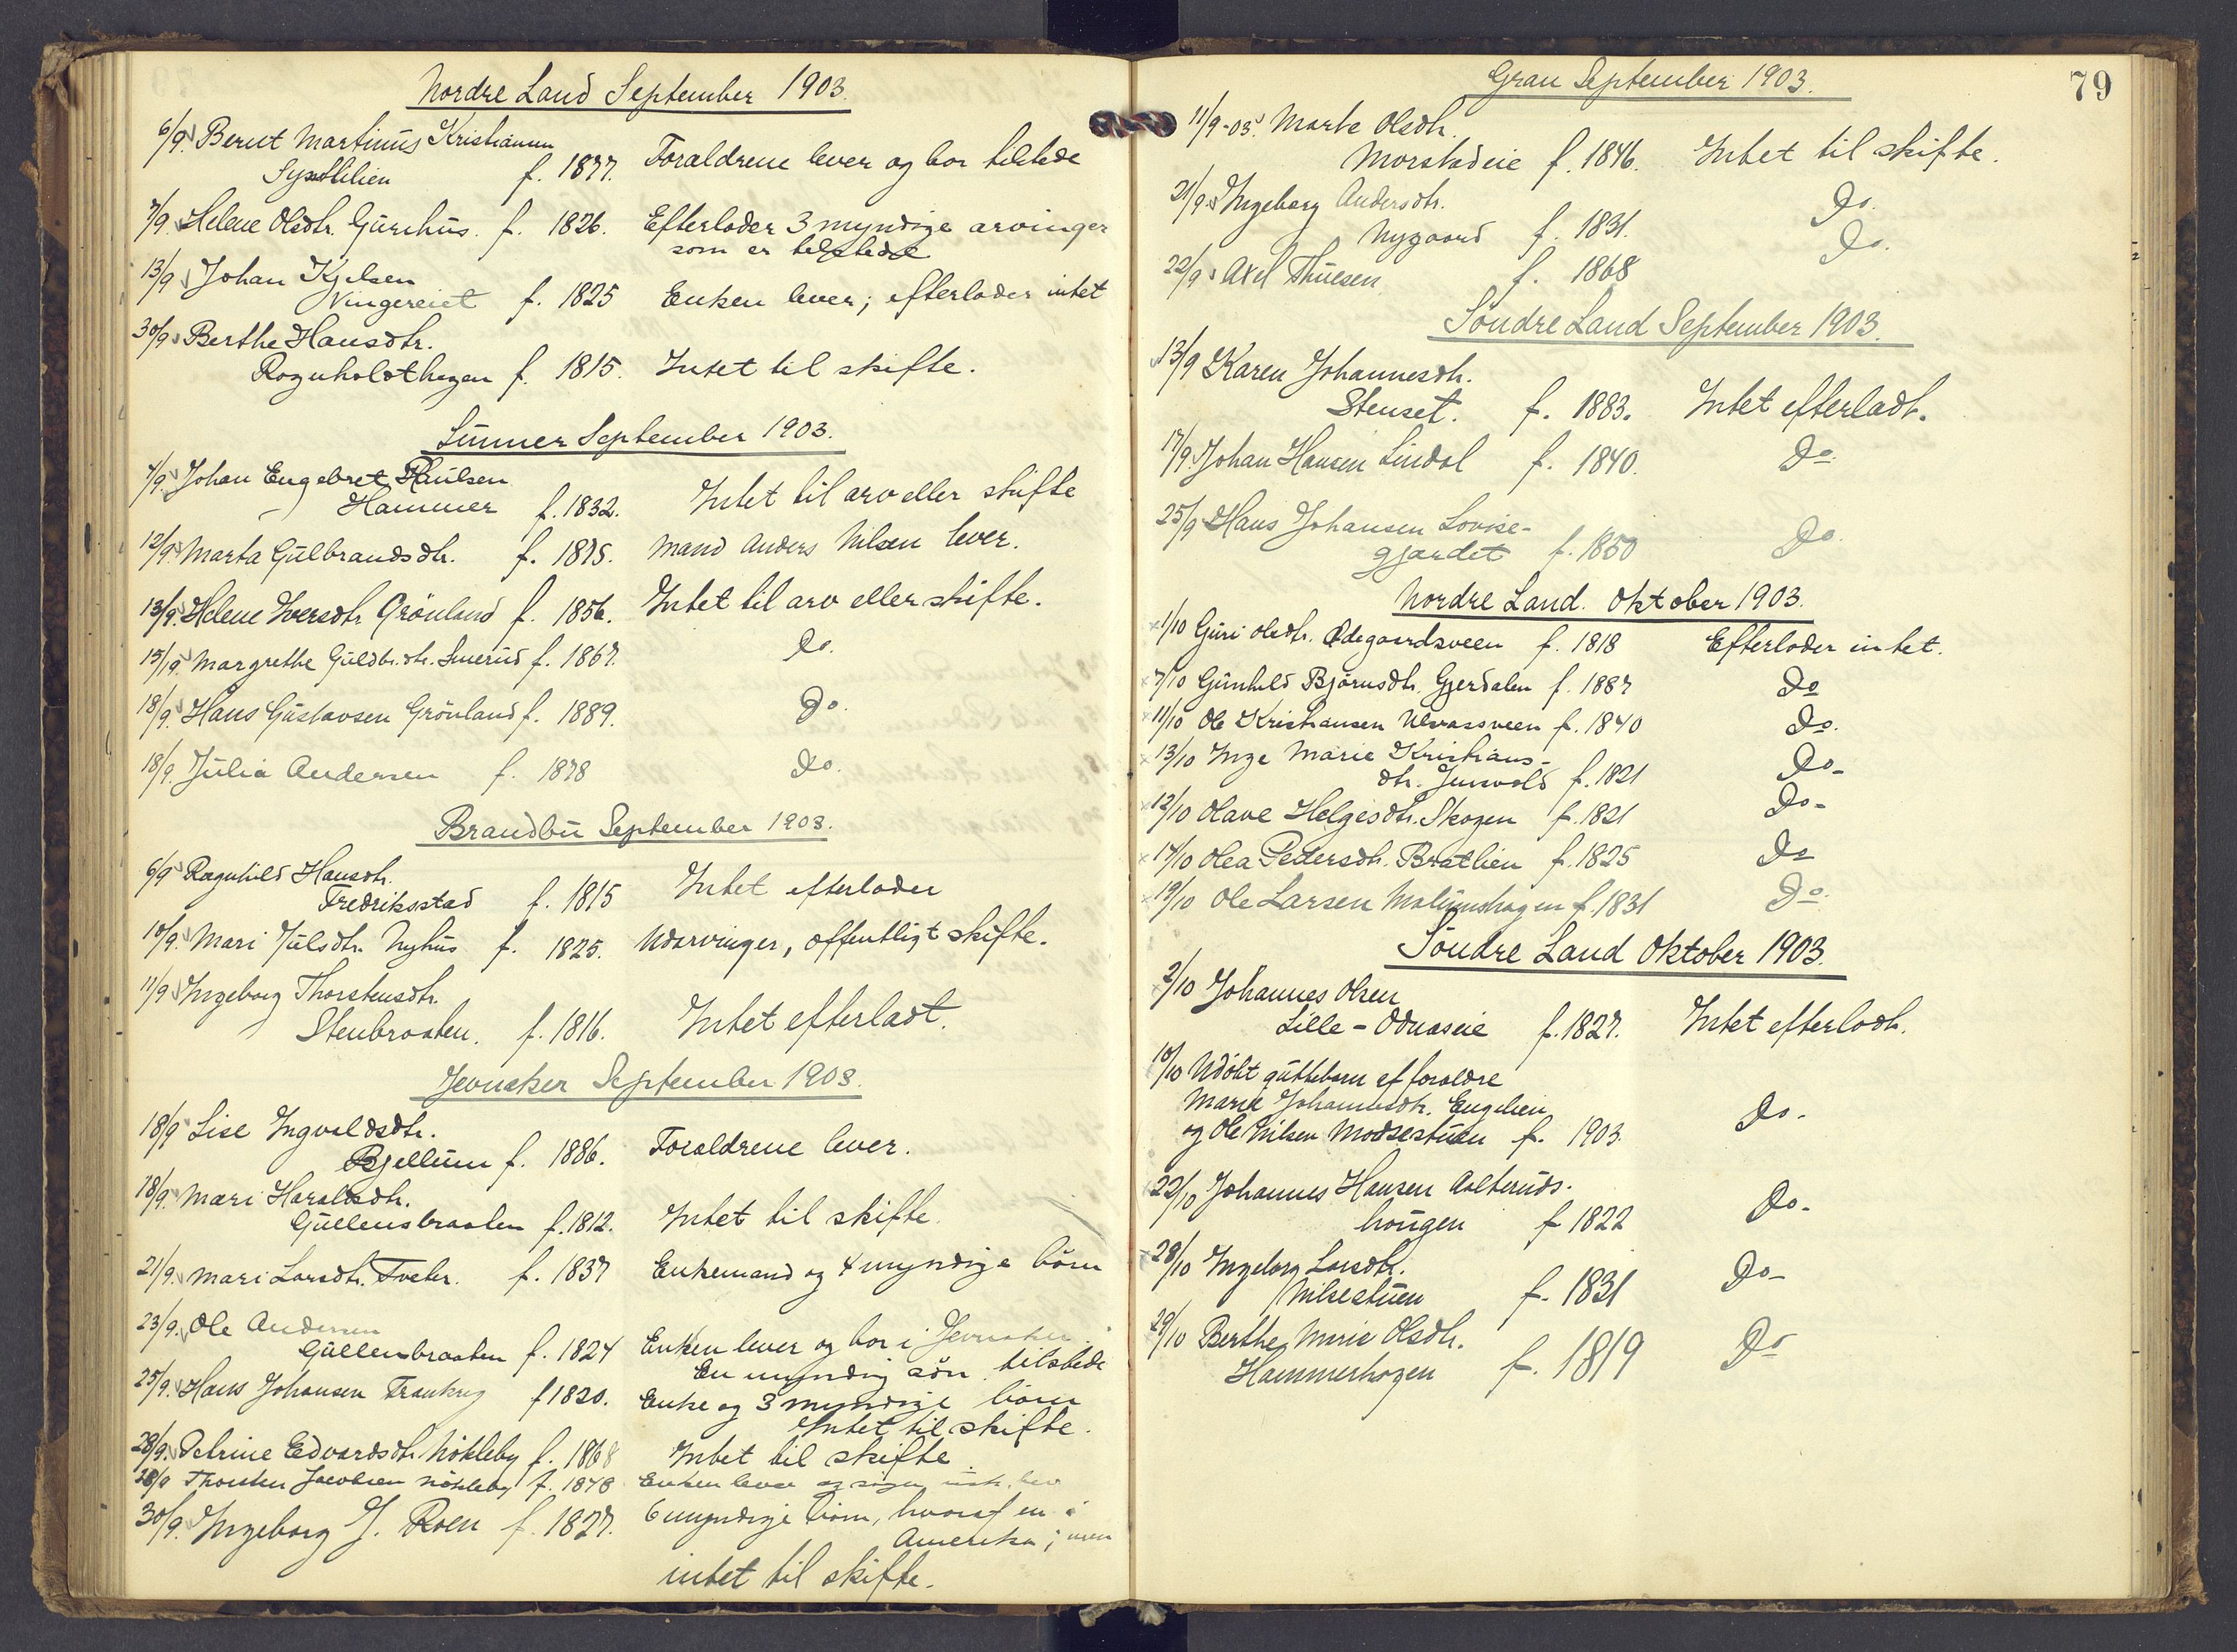 Nordre Land September 1903.
6/9. Bernt Martinus Kristiansen
f. 1877. Foraldrene lever og bor tilstede
7/9. Helene Olsdtr. Gurihus. f. 1826. Efterlader 3 myndige arvinger
som er tilstede
13/9 Johan Kjelsen
Vingereiet f. 1825 Enken lever; efterlader intet
30/9 Berthe Hansdtr.
Rognholdthagen f. 1815. Intet til skifte.
Lunner September 1903.
7/9. Johan Engebret Paulsen
Hammer f. 1832. Intet til arv eller skifte
12/9. Marta Gulbrandsdtr. f. 1875. Mand Anders Nilsen lever.
13/9. Helene Iversdtr Grönland f. 1856. Intet til arv eller skifte.
15/19. Margrethe Guldbr.dtr. Smerud f. 1867. Do.
18/9. Hans Gustavsen Grönland f. 1889. Do.
18/9. Julia Andersen f. 1878 Do.
Brandbu September 1903.
6/9 Ragnhild Hansdtr.
Fredriksstad f. 1815 Intet efterlader
10/9. Mari Julsdtr. Nyhus f. 1825. Udarvinger, offentligt skifte.
11/9 Ingeborg Thorstensdtr.
Stenbraaten. f. 1816. Intet efterladt.
Jevnaker September 1903.
18/9 Lise Ingvaldsdtr.
Bjellum f. 1886. Foraldrene lever.
18/9. Mari Haraldsdtr.
Gullensbraaten f. 1812. Intet til skifte.
21/9. Mari Larsdtr. Tveter. f. 1837 Enkemand og 4 myndige börn
23/9. Ole Andersen
Gullensbraaten f. 1824 Enken lever og bor i Jevnaker.
En myndig sön tilstede
25/9. Hans Johansen f 1820. Enke og 3 myndige börn
Intet til skifte.
28/9. Petrine Edvardsdtr. Nökleby f. 1868 Intet til skifte
28/9 Thorsten Jacobsen Nökleby f. 1848 Enken lever og
30/9. Ingeborg J. Roen f. 1827. 6 myndige börn, hvoraf en i
Amerika; men
intet til skifte.
79
Gran September 1903.
11/9-03. Marte Olsdtr.
Morstadeie f. 1846. Intet til skifte.
21/9. Ingeborg Andersdtr. Do.
Nygaard f. 1831.
22/9 Axel Thuesen f. 1868 Do.
Söndre Land September 1903.
13/9 Karen Johannesdtr.
Stenset. f. 1883. Intet efterladt.
17/9. Johan Hansen Lindal f. 1840. Do.
25/9 Hans Johansen Lovise-
gjardet f. 1850 Do.
Nordre Land. Oktober 1903.
1/10 Guri Olsdtr. Ödegaardsveen f. 1818 Efterlader intet.
7/10 Gunhild Björnsdtr. Gjerdalen f. 1887 Do
11/10 Ole Kristiansen f. 1840 Do.
13/10 Inge Marie Kristians-
dtr. Jensvold f. 1821 Do-
12/10 Olave Helgesdtr. Skogen f. 1821 Do-
14/10 Olea Pedersdtr. Bratlien f. 1825 Do
19/10 Ole Larsen f. 1831 Do.
Söndre Land Oktober 1903.
2/10 Johannes Olsen
Lille-Odnaseie f. 1827. Intet efterladt.
10/10 Udöbt guttebarn af foraldre
Marie Johannesdtr. Englien
og Ole Nilsen Modsestuen f. 1903 Do.
22/10 Johannes Hansen
haugen f 1822 Do-
28/10 Ingeborg Larsdtr.
Nilsestuen f. 1831 Do-
29/10 Berthe Marie Olsdtr.
Hammerhagen f. 1819 Do